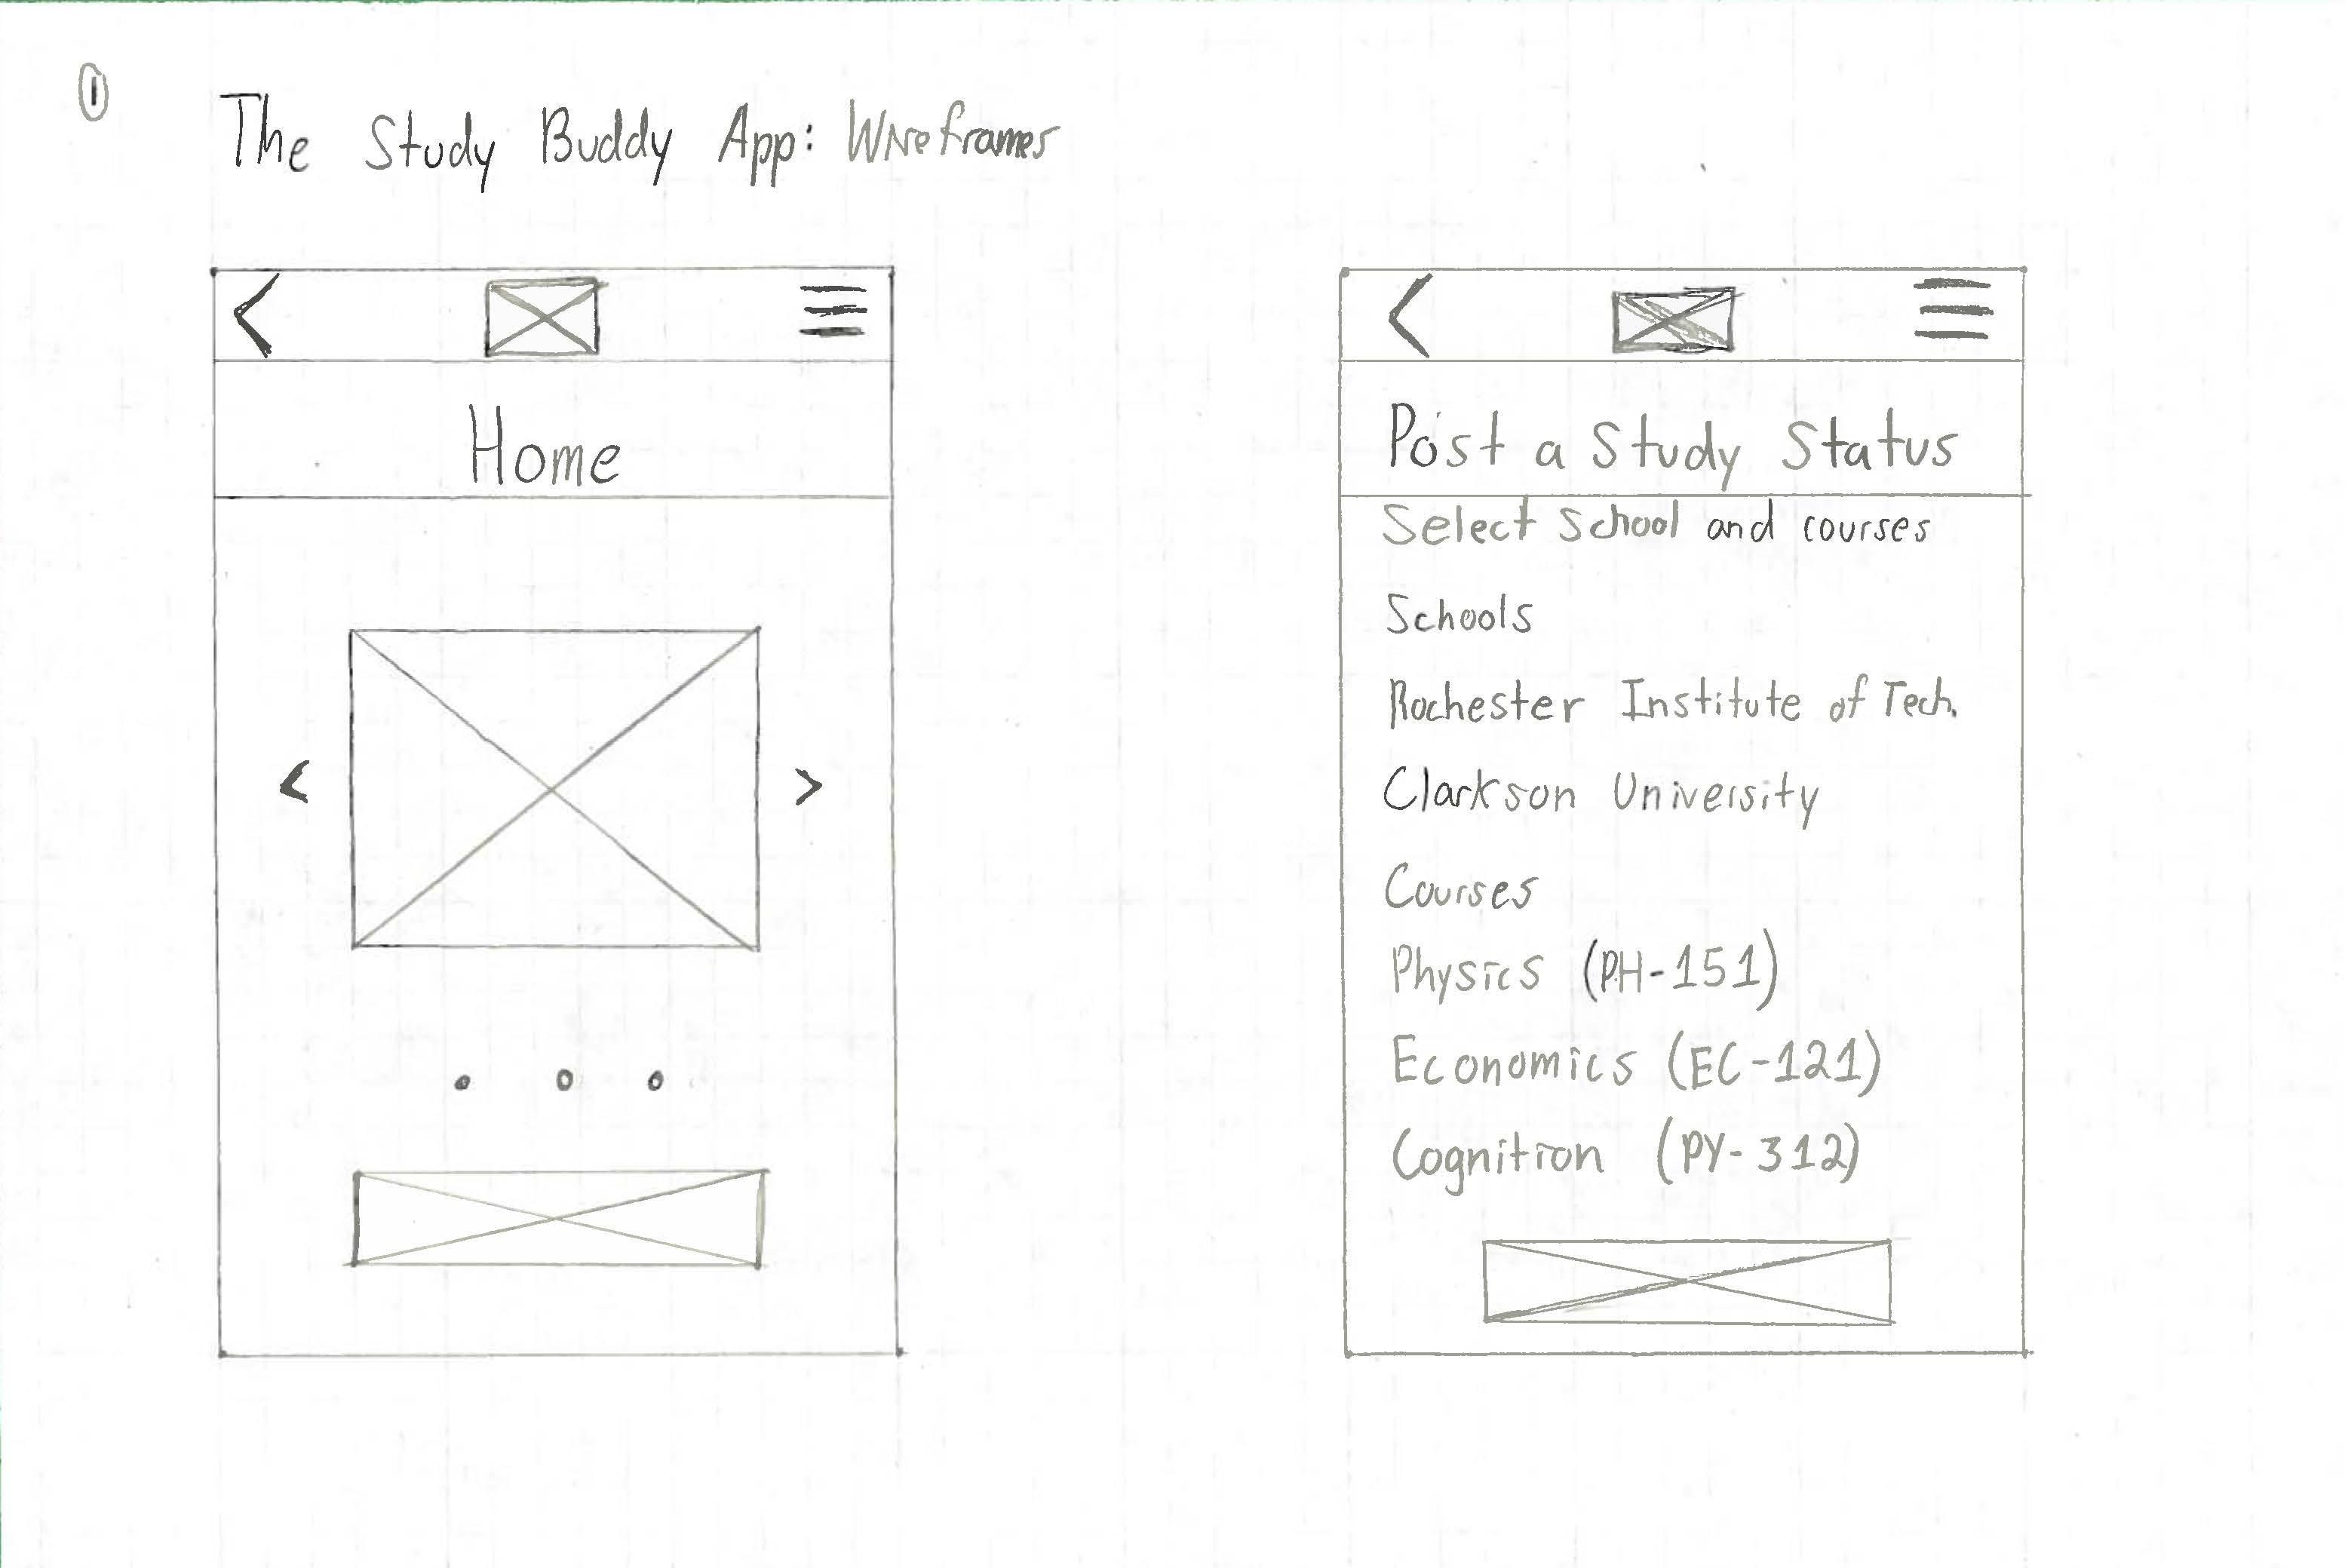 1
The Study Buddy App: Wireframes
Home
Post a Study Status
Select School and courses
Schools
Rochester Institute of Tech.
Clarkson University
Courses
Physics (PH-151)
Economics (EC-121)
Cognition (PY-312)